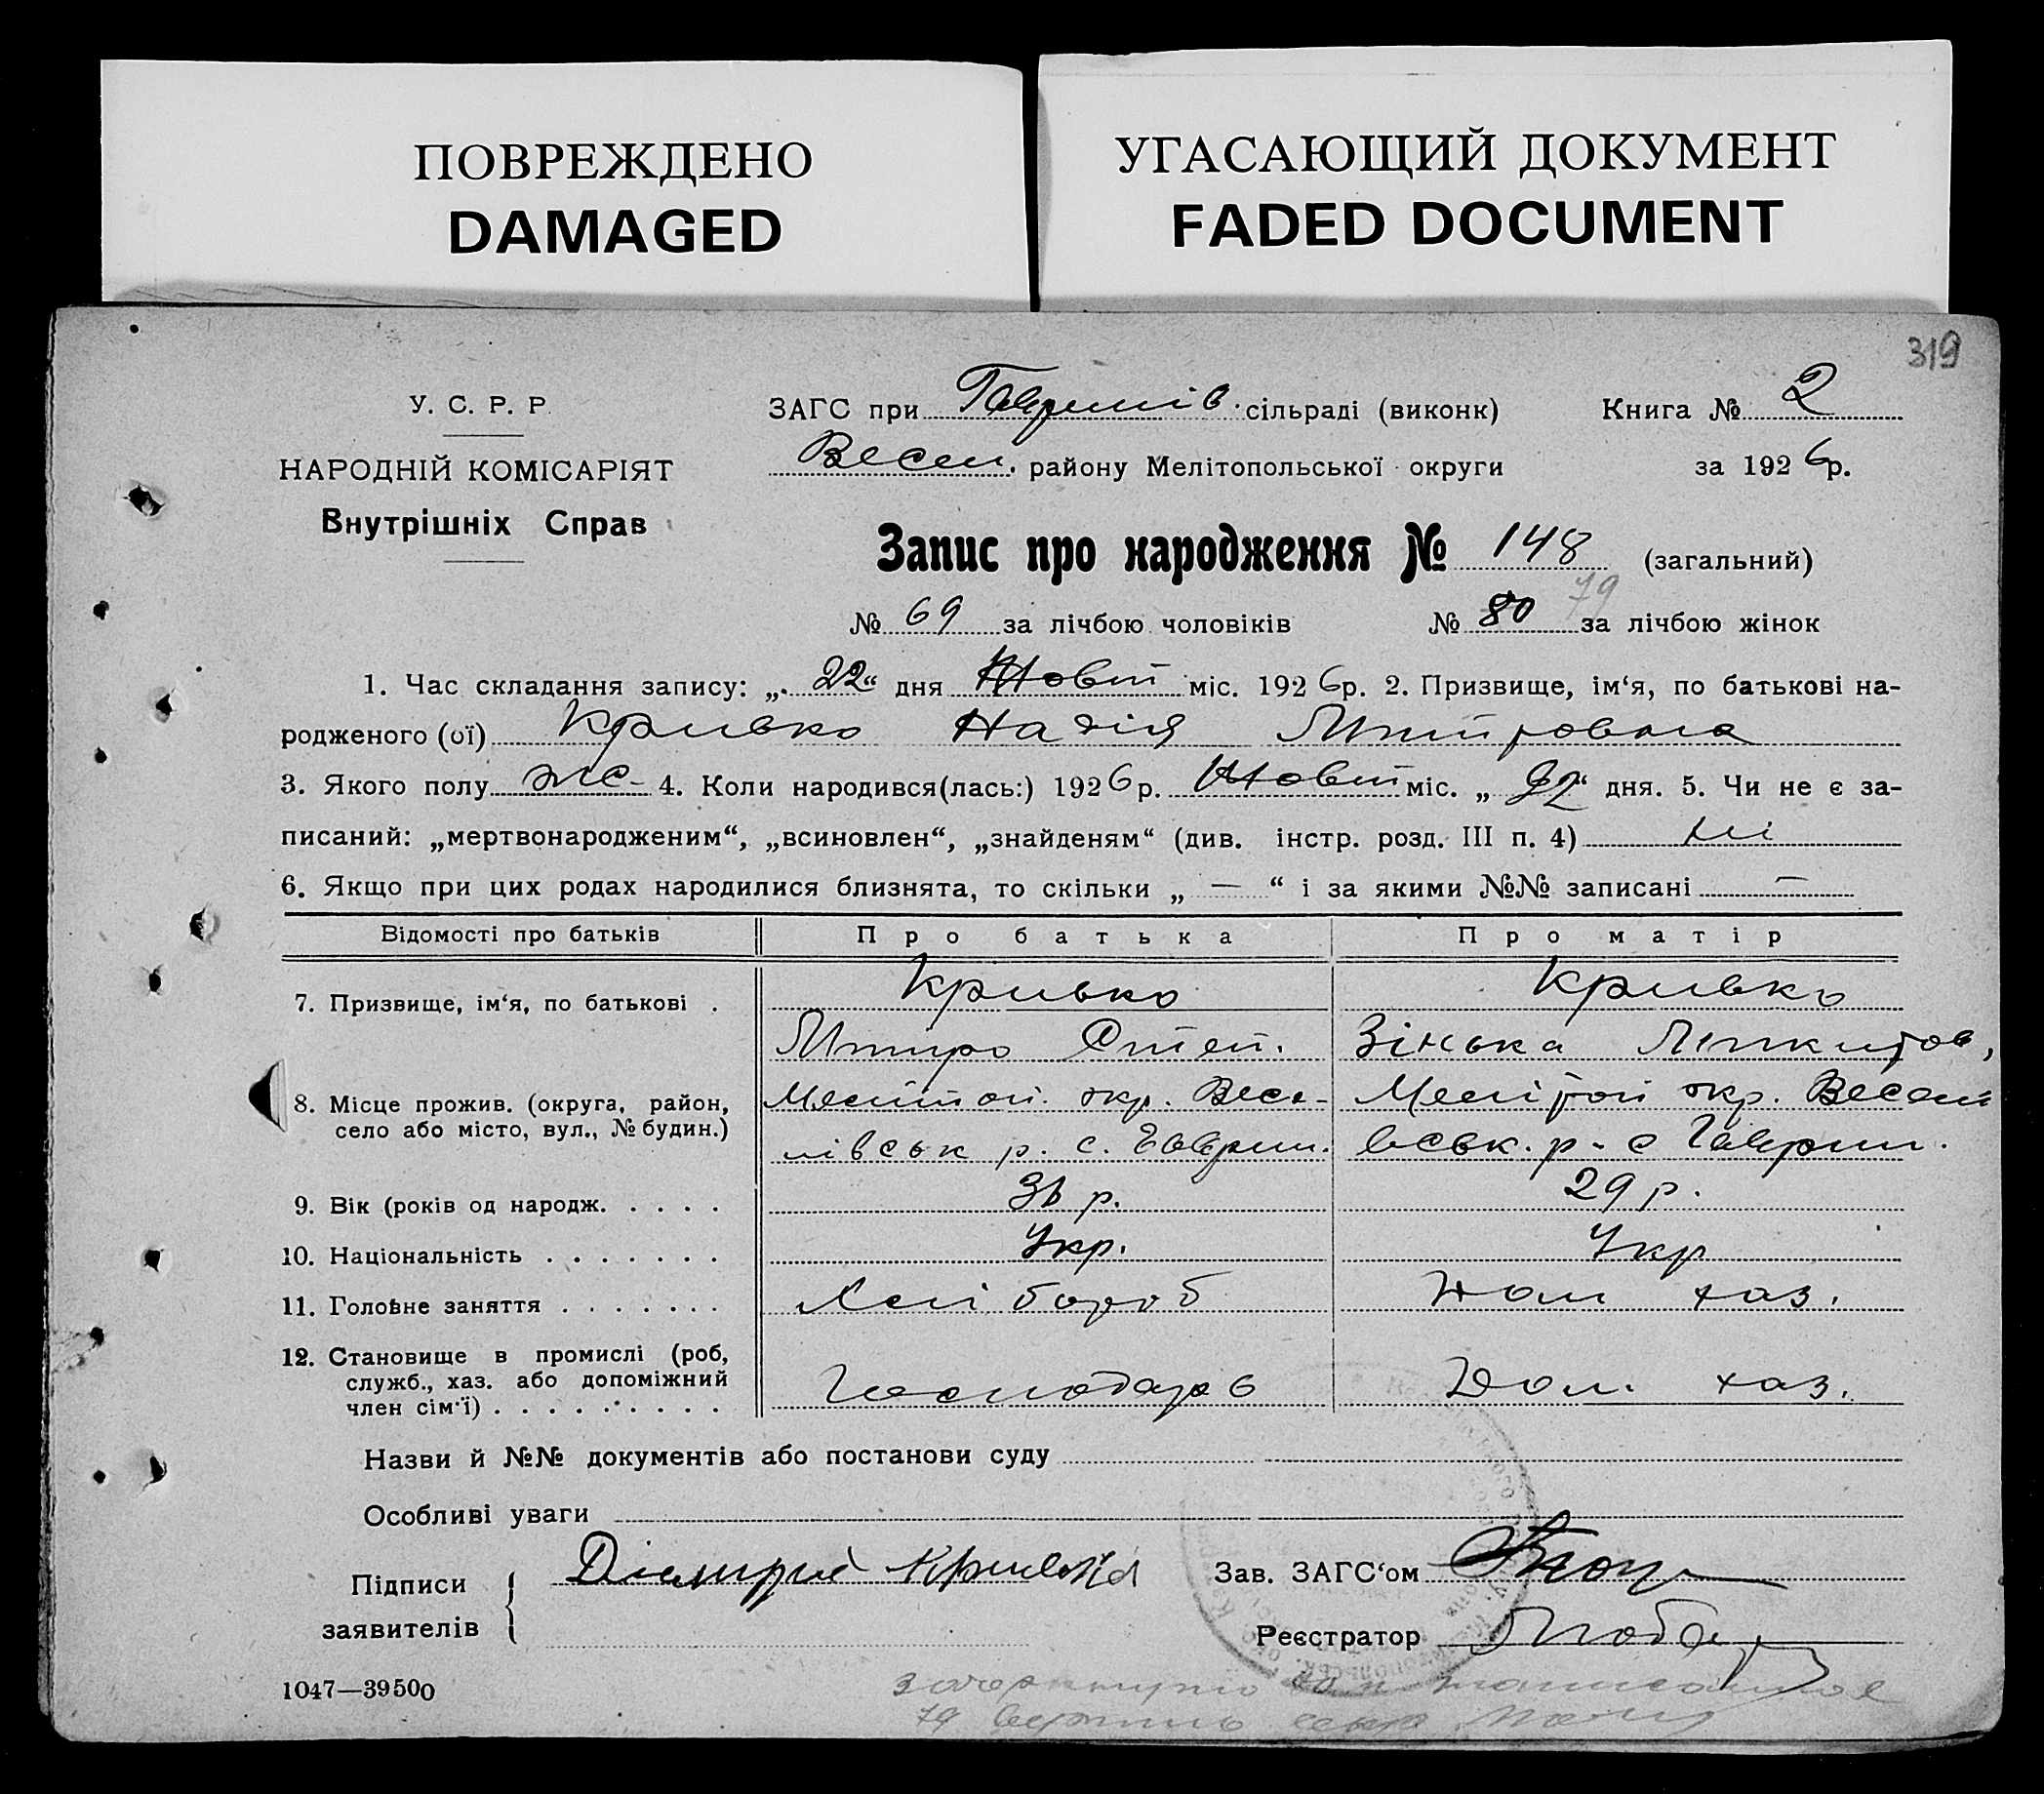 ПОВРЕЖДЕНО
DAMAGED
УГАСАЮЩИЙ ДОКУМЕНТ
FADED DOCUMENT
319
У. С. Р. Р.
НАРОДНІЙ КОМІСАРІЯТ
Внутрішніх Справ
ЗАГС при Гаврилів. сільраді (виконк) Книга № 2
Весел. району Мелітопольської округи за 1926 р.
Запис про народження № 148 (загальний)
№ 69 за лічбою чоловіків № 80 79 за лічбою жінок
1. Час складання запису: „22“ дня Жовт міс. 1926 р. 2. Призвище, ім‘я, по батькові на-
родженого (ої) Кривко Надія Митровна
3. Якого полу жс- 4. Коли народився(лась:) 1926 р. Жовт міс. „22“ дня. 5. Чи не є за-
писаний: „мертвонародженим“, „всиновлен“, „знайденям“ (див. інстр. розд. III п. 4) ні
6. Якщо при цих родах народилися близнята, то скільки „ — “ і за якими №№ записані —
Відомості про батьків Про батька Про матір
7. Призвище, ім‘я, по батькові . Кривко Кривко
Митро Степ. Зінька
8. Місце прожив. (округа, район, село або місто, вул., № будин.) Мелітоп. окр. Весе- Мелітоп окр. Весел
лівськ р. с. Гаврил. вськ. р. с Гаврил.
9. Вік (років од народж. . . . . р. 29 р.
10. Національність . . . . . . . Укр. Укр
11. Головне заняття . . . . . . . Хлібороб Дом хаз.
12. Становище в промислі (роб, служб., хаз. або допоміжний член сім‘ї) . . . . . . . . . Господарь Дом. хаз.
Назви й №№ документів або постанови суду
Особливі уваги
Підписи заявителів Дімитрий Кривко
Зав. ЗАГС‘ом
Реєстратор
1047—39500
79